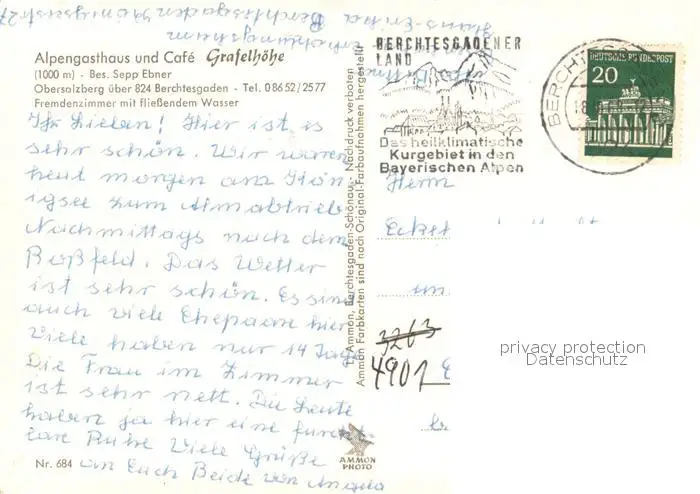 Hans-Erika
Berchtesgaden Königsseerstr 27
Erholungsheim
Alpengasthaus und Café Grafelhöhe
(1000 m) - Bes. Sepp Ebner
Obersalzberg über 824 Berchtesgaden - Tel. 0 86 52 / 25 77
Fremdenzimmer mit fließendem Wasser
Ihr Lieben! Hier ist es
sehr schön. Wir waren
heut morgen am Kön
igsee zum Almabtrieb
Nachmittags nach dem
Roßfeld. Das Wetter
ist sehr schön. Es sind
auch viele Ehepaare hier
Viele haben nur 14 Tage
Die Frau im Zimmer
ist sehr nett. Die Leute
haben ja hier eine furcht
bare Ruhe Viele Grüße
an Euch Beide von Angela
Nr. 684
Ammon, Berchtesgaden-Schönau - Nachdruck verboten
Ammon Farbkarten sind nach Original-Farbaufnahmen hergestellt
AMMON
PHOTO
BERCHTESGADENER
LAND
Das heilklimatische
Kurgebiet in den
Bayerischen Alpen
BERCHTESG
18
DEUTSCHE BUNDESPOST
20
Herrn
un
3263
4901
privacy protection
Datenschutz